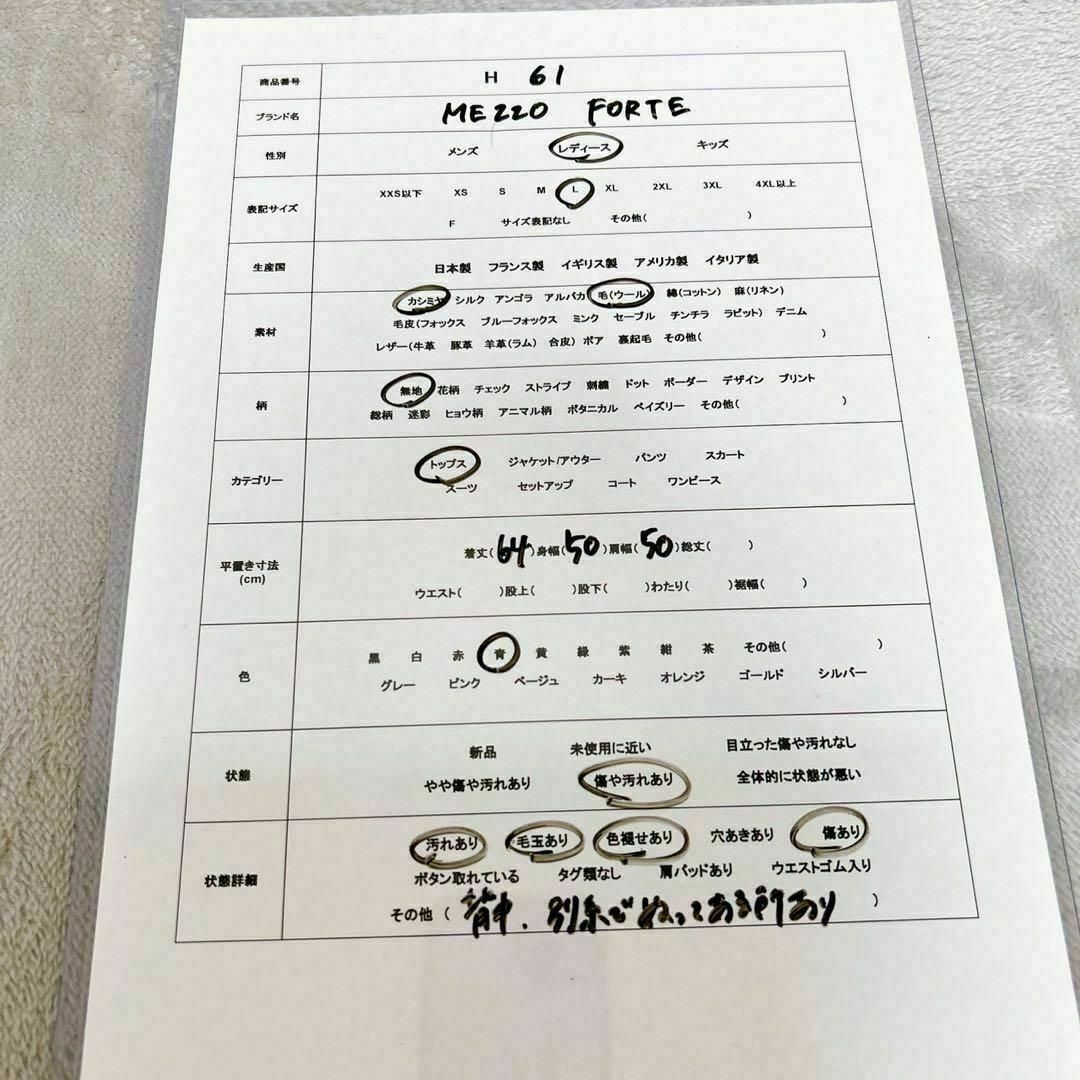 商品番号 H 61
ブランド名 MEZZO FORTE
性別 メンズ レディース キッズ
表記サイズ XXS以下 XS S M L XL 2XL 3XL 4XL以上
F サイズ表記なし その他( )
生産国 日本製 フランス製 イギリス製 アメリカ製 イタリア製
素材 カシミヤ シルク アンゴラ アルパカ 毛(ウール) 綿(コットン) 麻(リネン)
毛皮(フォックス ブルーフォックス ミンク セーブル チンチラ ラビット) デニム
レザー(牛革 豚革 羊革(ラム) 合皮) ボア 裏起毛 その他( )
柄 無地 花柄 チェック ストライプ 刺繍 ドット ボーダー デザイン プリント
総柄 迷彩 ヒョウ柄 アニマル柄 ボタニカル ペイズリー その他( )
カテゴリー トップス ジャケット/アウター パンツ スカート
スーツ セットアップ コート ワンピース
平置き寸法
(cm)
着丈(64)身幅(50)肩幅(50)総丈( )
ウエスト( )股上( )股下( )わたり( )裾幅( )
色 黒 白 赤 青 黄 緑 紫 紺 茶 その他( )
グレー ピンク ベージュ カーキ オレンジ ゴールド シルバー
状態 新品 未使用に近い 目立った傷や汚れなし
やや傷や汚れあり 傷や汚れあり 全体的に状態が悪い
状態詳細 汚れあり 毛玉あり 色褪せあり 穴あきあり 傷あり
ボタン取れている タグ類なし 肩パッドあり ウエストゴム入り
その他 ( 背中、別糸でぬってある所あり )